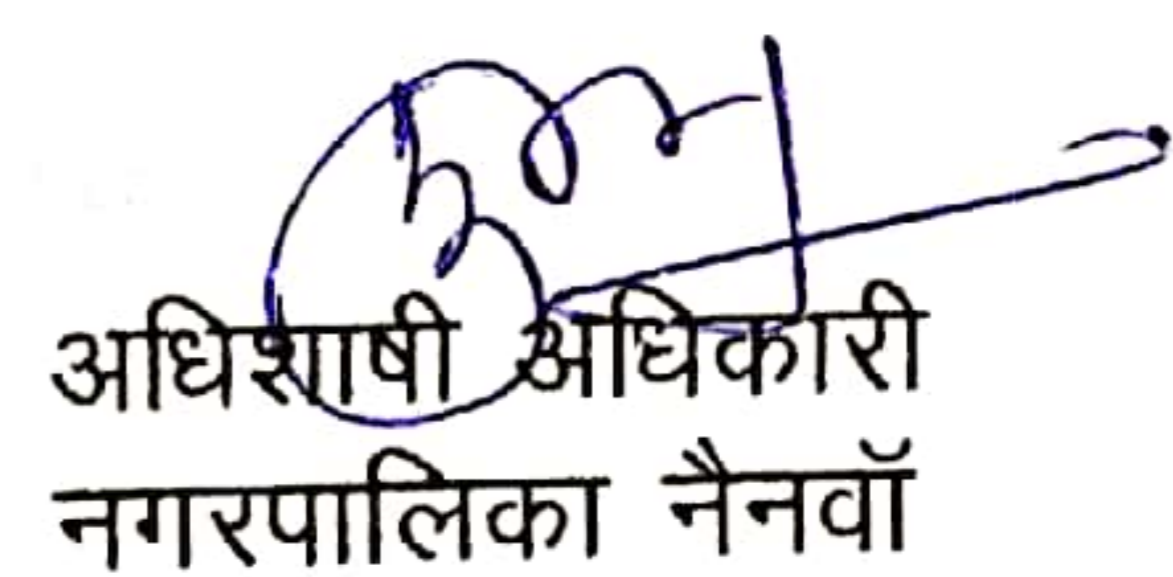 अधिशाषी अधिकारी
नगरपालिका नैनवॉ